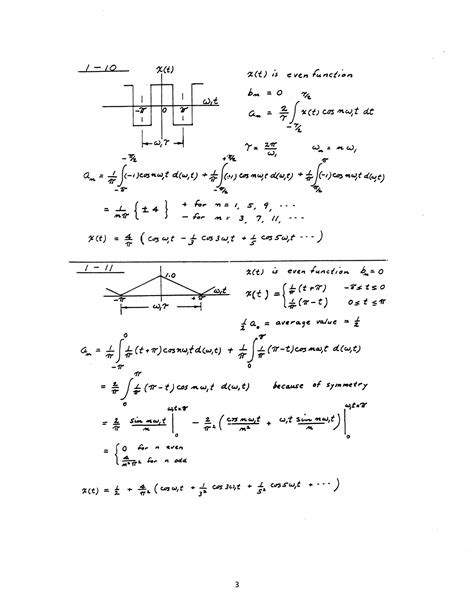 1-10
x(t)
x(t) is even function
b_n = 0
-π 0 π ω,t
a_n = 2/τ ∫_{-τ/2}^{τ/2} x(t) cos nω,t dt
ω,τ
τ = 2π/ω, ω_n = nω,
a_n = 1/π ∫_{-π}^{-π/2} (-1) cos nω,t d(ω,t) + 1/π ∫_{-π/2}^{+π/2} (+1) cos nω,t d(ω,t) + 1/π ∫_{π/2}^{π} (-1) cos nω,t d(ω,t)
= 1/nπ { ±4 } + for n = 1, 5, 9, ···
- for n = 3, 7, 11, ···
x(t) = 4/π ( cos ω,t - 1/3 cos 3ω,t + 1/5 cos 5ω,t ··· )
1-11
x(t) is even function b_n = 0
1.0
-π +π ω,t
x(t) = { 1/π (t+π) -π ≤ t ≤ 0
1/π (π-t) 0 ≤ t ≤ π
ω,τ
1/2 a_0 = average value = 1/2
a_n = 1/π ∫_{-π}^{0} 1/π (t+π) cos nω,t d(ω,t) + 1/π ∫_{0}^{π} 1/π (π-t) cos nω,t d(ω,t)
= 2/π ∫_{0}^{π} 1/π (π-t) cos nω,t d(ω,t) because of symmetry
= 2/π sin nω,t/n |_{0}^{ω,t=π} - 2/π² ( cos nω,t/n² + ω,t sin nω,t/n ) |_{0}^{ω,t=π}
= { 0 for n even
4/n²π² for n odd
x(t) = 1/2 + 4/π² ( cos ω,t + 1/3² cos 3ω,t + 1/5² cos 5ω,t + ··· )
3